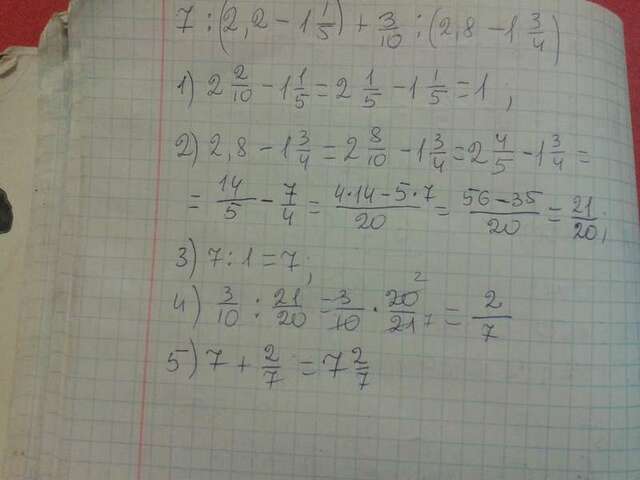 7 : (2,2 - 1 1/5) + 3/10 : (2,8 - 1 3/4)
1) 2 2/10 - 1 1/5 = 2 1/5 - 1 1/5 = 1 ;
2) 2,8 - 1 3/4 = 2 8/10 - 1 3/4 = 2 4/5 - 1 3/4 =
= 14/5 - 7/4 = (4·14 - 5·7)/20 = (56 - 35)/20 = 21/20 ;
3) 7 : 1 = 7 ;
4) 3/10 : 21/20 = 3/10 · 20 2/21 7 = 2/7
5) 7 + 2/7 = 7 2/7